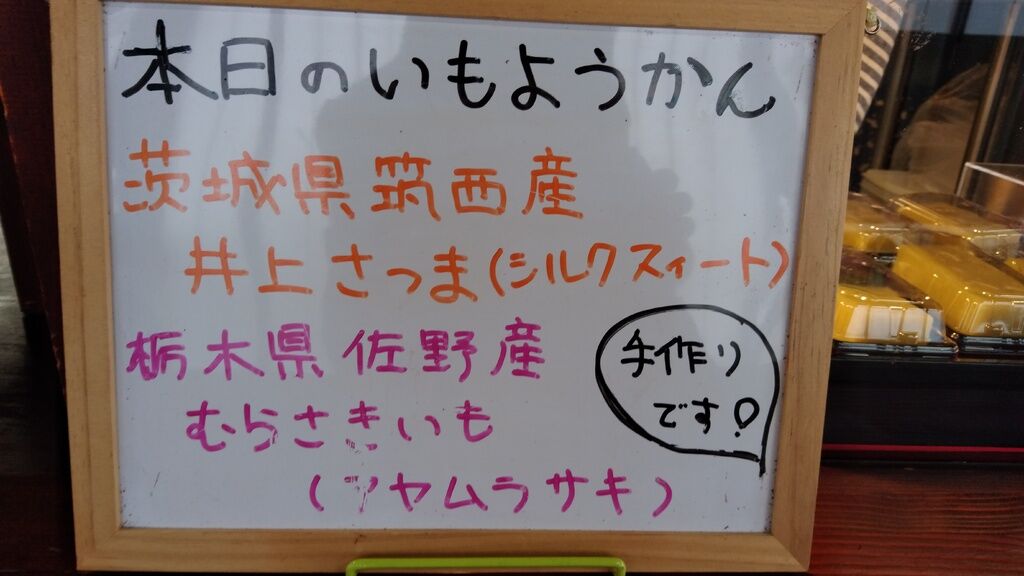 本日のいもようかん
茨城県筑西産
井上さつま(シルクスィート)
栃木県佐野産
むらさきいも
(アヤムラサキ)
手作り
です!